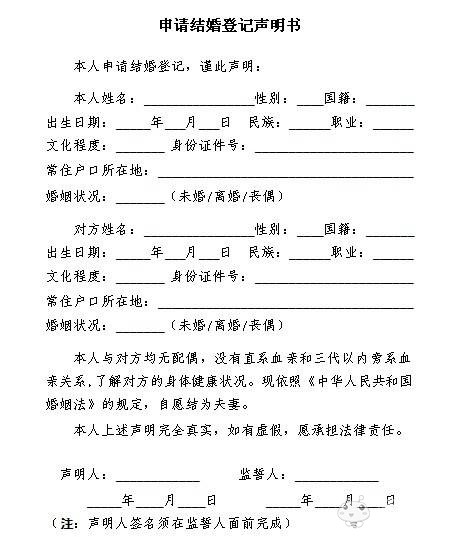 申请结婚登记声明书
本人申请结婚登记，谨此声明：
本人姓名：________________性别：____国籍：_______
出生日期：_____年___月___日 民族：______职业：______
文化程度：_______ 身份证件号：_______________________
常住户口所在地：_____________________________________
婚姻状况：_______（未婚/离婚/丧偶）
对方姓名：________________性别：____国籍：_______
出生日期：_____年___月___日 民族：______职业：______
文化程度：_______ 身份证件号：_______________________
常住户口所在地：_____________________________________
婚姻状况：_______（未婚/离婚/丧偶）
本人与对方均无配偶，没有直系血亲和三代以内旁系血
亲关系,了解对方的身体健康状况。现依照《中华人民共和国
婚姻法》的规定，自愿结为夫妻。
本人上述声明完全真实，如有虚假，愿承担法律责任。
声明人：____________ 监誓人：____________
_____年____月____日 _____年____月____日
（注：声明人签名须在监誓人面前完成）